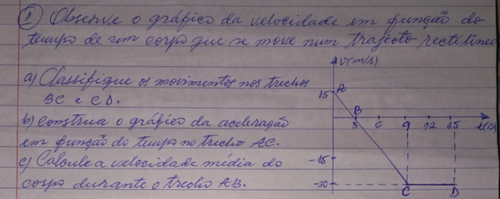 1) Observe o gráfico da velocidade em função do
tempo de um corpo que se move num trajecto rectilíneo
a) Classifique os movimentos nos trechos
BC e CD.
b) construa o gráfico da aceleração
em função do tempo no trecho AC.
c) Calcule a velocidade média do
corpo durante o trecho AB.
v(m/s)
15 A
B
3 6 9 12 15
-15
-30
C D